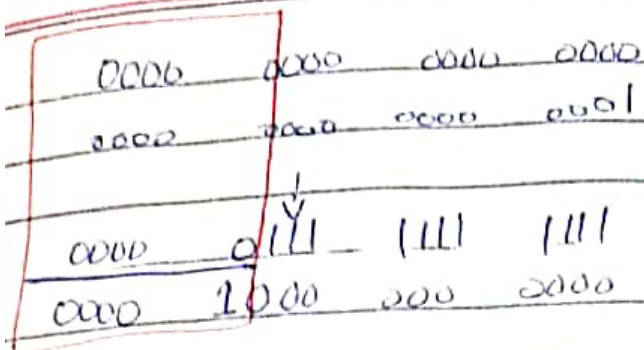 0000 0000 0000 0000
0000 0000 0000 0001
0000 0111 1111 1111
0000 1000 000 0000